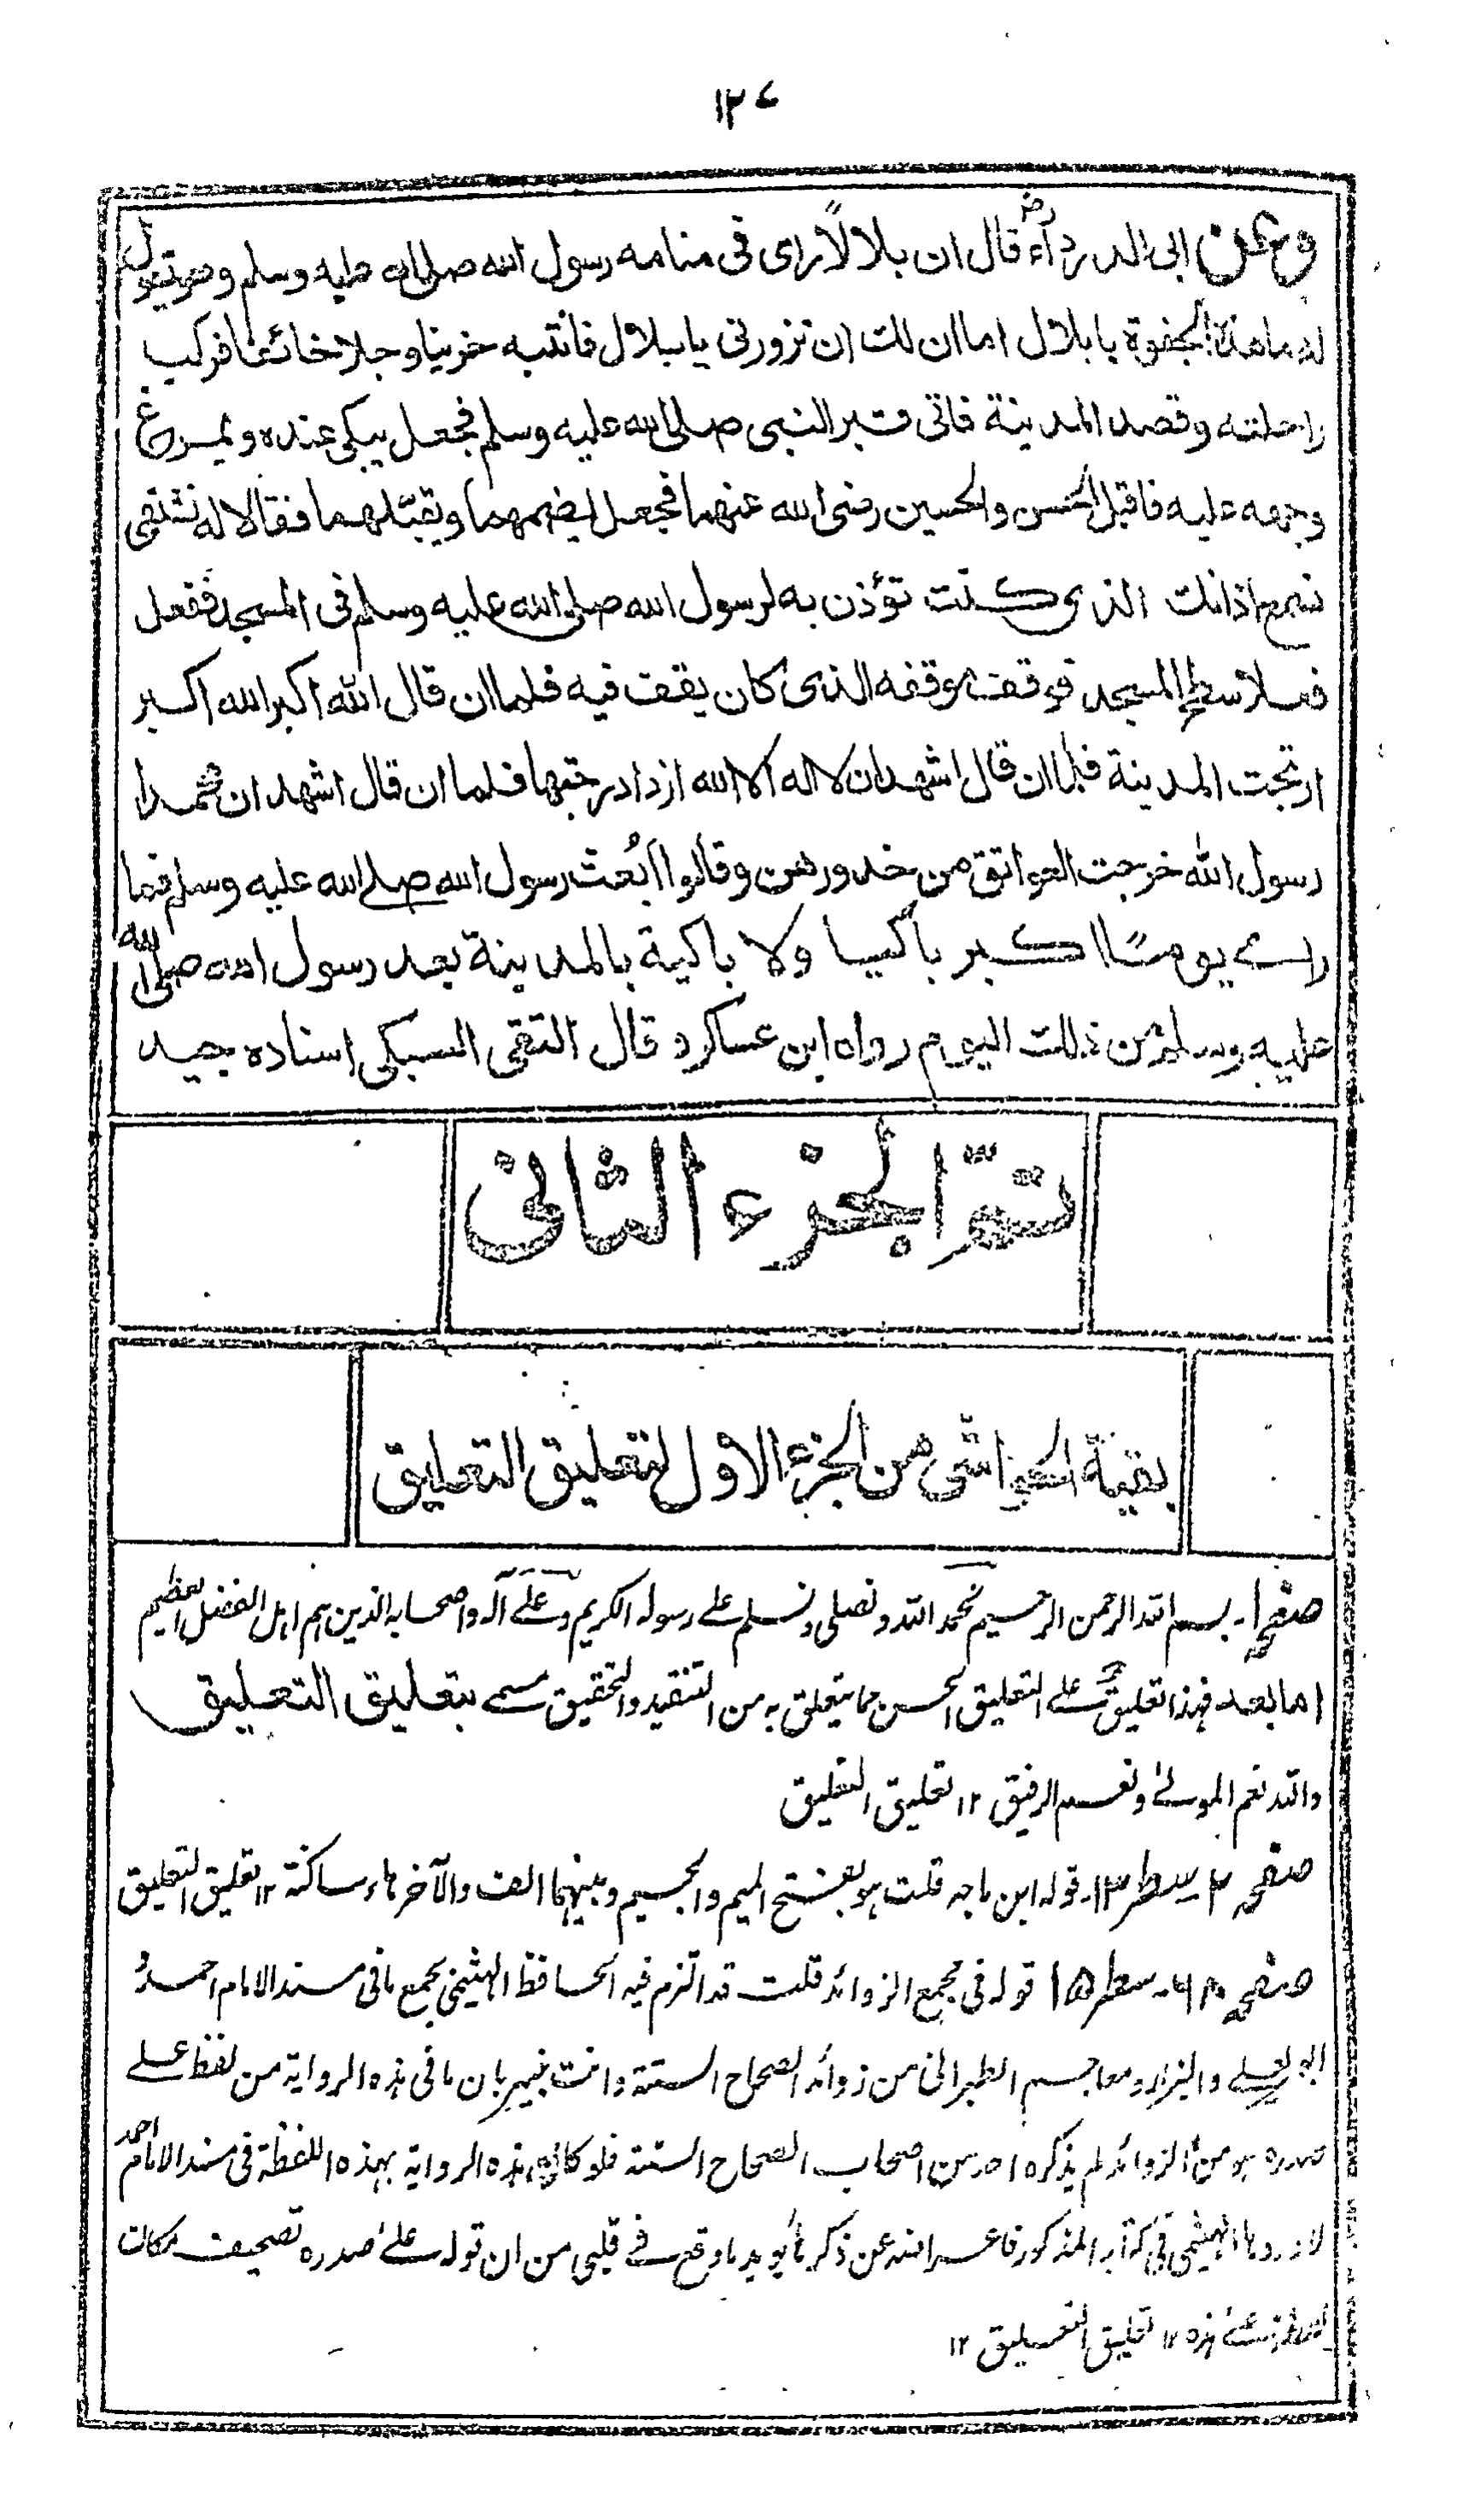 ١٢٧
وعن ابى الدرداءؓ قال ان بلالاً راى فى منامه رسول الله صلى الله عليه وسلم وهو يقول
له ما هذه الجفوة يا بلال اما ان لك ان تزورنى يا بلال فانتبه حزينا وجلا خائفا فركب
راحلته وقصد المدينة فاتى قبر النبى صلى الله عليه وسلم فجعل يبكى عنده ويمرغ
وجهه عليه فاقبل الحسن والحسين رضى الله عنهما فجعل يضمهما ويقبّلهما فقالا له نشتهى
نسمع اذانك الذى كنت تؤذن به لرسول الله صلى الله عليه وسلم فى المسجد ففعل
فعلا سطح المسجد فوقف موقفه الذى كان يقف فيه فلما ان قال الله اكبر الله اكبر
ارتجت المدينة فلما ان قال اشهد ان لا اله الا الله ازداد رجتها فلما ان قال اشهد ان محمدا
رسول الله خرجت العواتق من خدورهن وقالوا أبُعث رسول الله صلے الله عليه وسلم فما
راى يوما اكبر باكيا ولا باكية بالمدينة بعد رسول الله صلى الله
عليه وسلم من ذلك اليوم رواه ابن عساكر وقال التقى السبكى اسناده جيد
تمّ الجزء الثانى
بقية الحواشى من الجزء الاول لتعليق التعليق
صفحه ١۔ بسم الله الرحمن الرحيم نحمد الله ونصلى ونسلم على رسوله الكريم وعلے آله واصحابه الذين هم اهل الفضل العظيم
اما بعد فهذا تعليق علے التعليق الحسن مما يتعلق به من التنقيد والتحقيق مسمے بتعليق التعليق
والله نعم المولےٰ ونعم الرفيق ١٢ تعليق التعليق
صفحه ٢ سطر ١٣۔ قوله ابن ماجه قلت هو بفتح الميم والجيم وبينهما الف والآخر هاء ساكنة ١٢ تعليق التعليق
صفحه ٦٨۔ سطر ١٥ قوله فى مجمع الزوائد قلت قد التزم فيه الحافظ الهيثمى بجمع ما فى مسند الامام احمد و
ابو يعلے والبزار ومعاجم الطبرانى من زوائد الصحاح الستة وانت خبير بان ما فى هذه الرواية من لفظ علے
صدره هو من الزوائد لم يذكره احد من اصحاب الصحاح الستة فلو كان هذه الرواية بهذه اللفظة فى مسند الامام احمد
لاوردها الهيثمى فى كتابه المذكور فاعراضه عن ذكرها يويد ما وقع فے قلبى من ان قوله علےٰ صدره تصحيف مكان
علےٰ هذه ١٢ تعليق التعليق ١٢